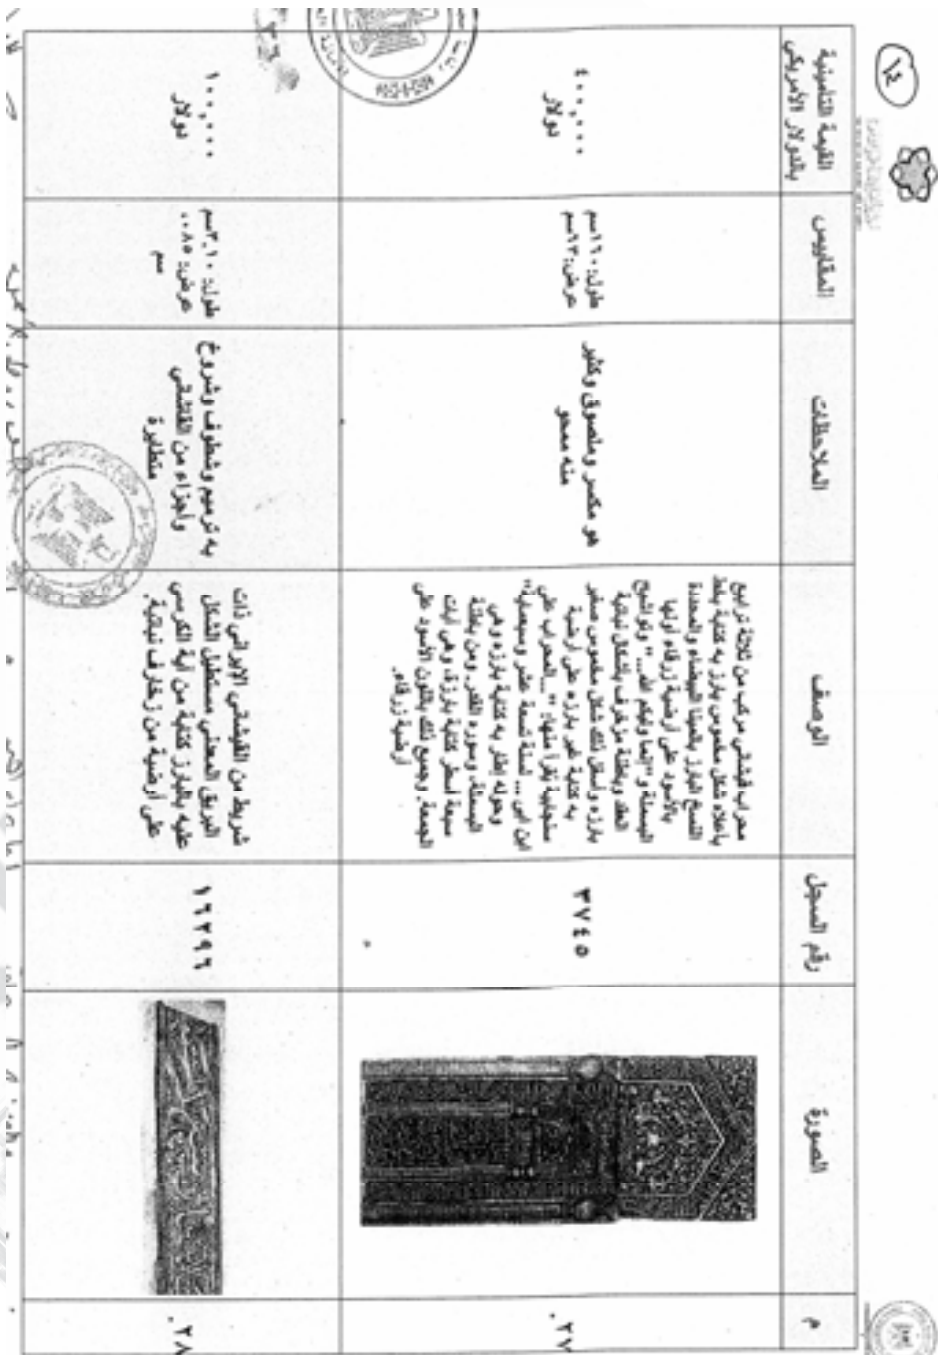 ١٤
م
الصورة
رقم السجل
الوصف
الملاحظات
المقاييس
القيمة التأمينية
بالدولار الأمريكي
٢٧.
٣٧٤٥
محراب قيشاني مركب من ثلاثة ترابيع
بأعلاه شكل مخموس بارز به كتابة بخط
النسخ البارز بالمينا البيضاء والمحددة
بالأسود على أرضية زرقاء أولها
البسملة و "إنما وليكم الله..." وتواشيح
العقد وباطنة مزخرف بأشكال نباتية
بارزه وأسفل ذلك شكل مخموس صغير
به كتابة غير بارزه على أرضية
سنجابية نقرأ منها: "...المحراب على
ابن ابى ... لسنة تسعة عشر وسبعماية"
وحوله إطار به كتابة بارزه وهي
البسملة، وسوره القدر. ومن باطنة
سبعة أسطر كتابة بارزة، وهي آيات
الجمعة. وجميع ذلك باللون الأسود على
أرضية زرقاء.
هو مكسر وملصوق وكثير
منه ممحو
طول: ١٦٠سم
عرض: ٦٣سم
٤٠٠,٠٠٠
دولار
٢٨.
١٦٢٩٦
شريط من القيشاني الإيراني ذات
البريق المعدني مستطيل الشكل
عليه بالبارز كتابة من آية الكرسي
على أرضية من زخارف نباتية.
به ترميم وشطوف وشروخ
وأجزاء من القاشاني
متطايرة
طول: ٣,١٠سم
عرض: ٠٠٨٥
سم
١٠٠,٠٠٠
دولار